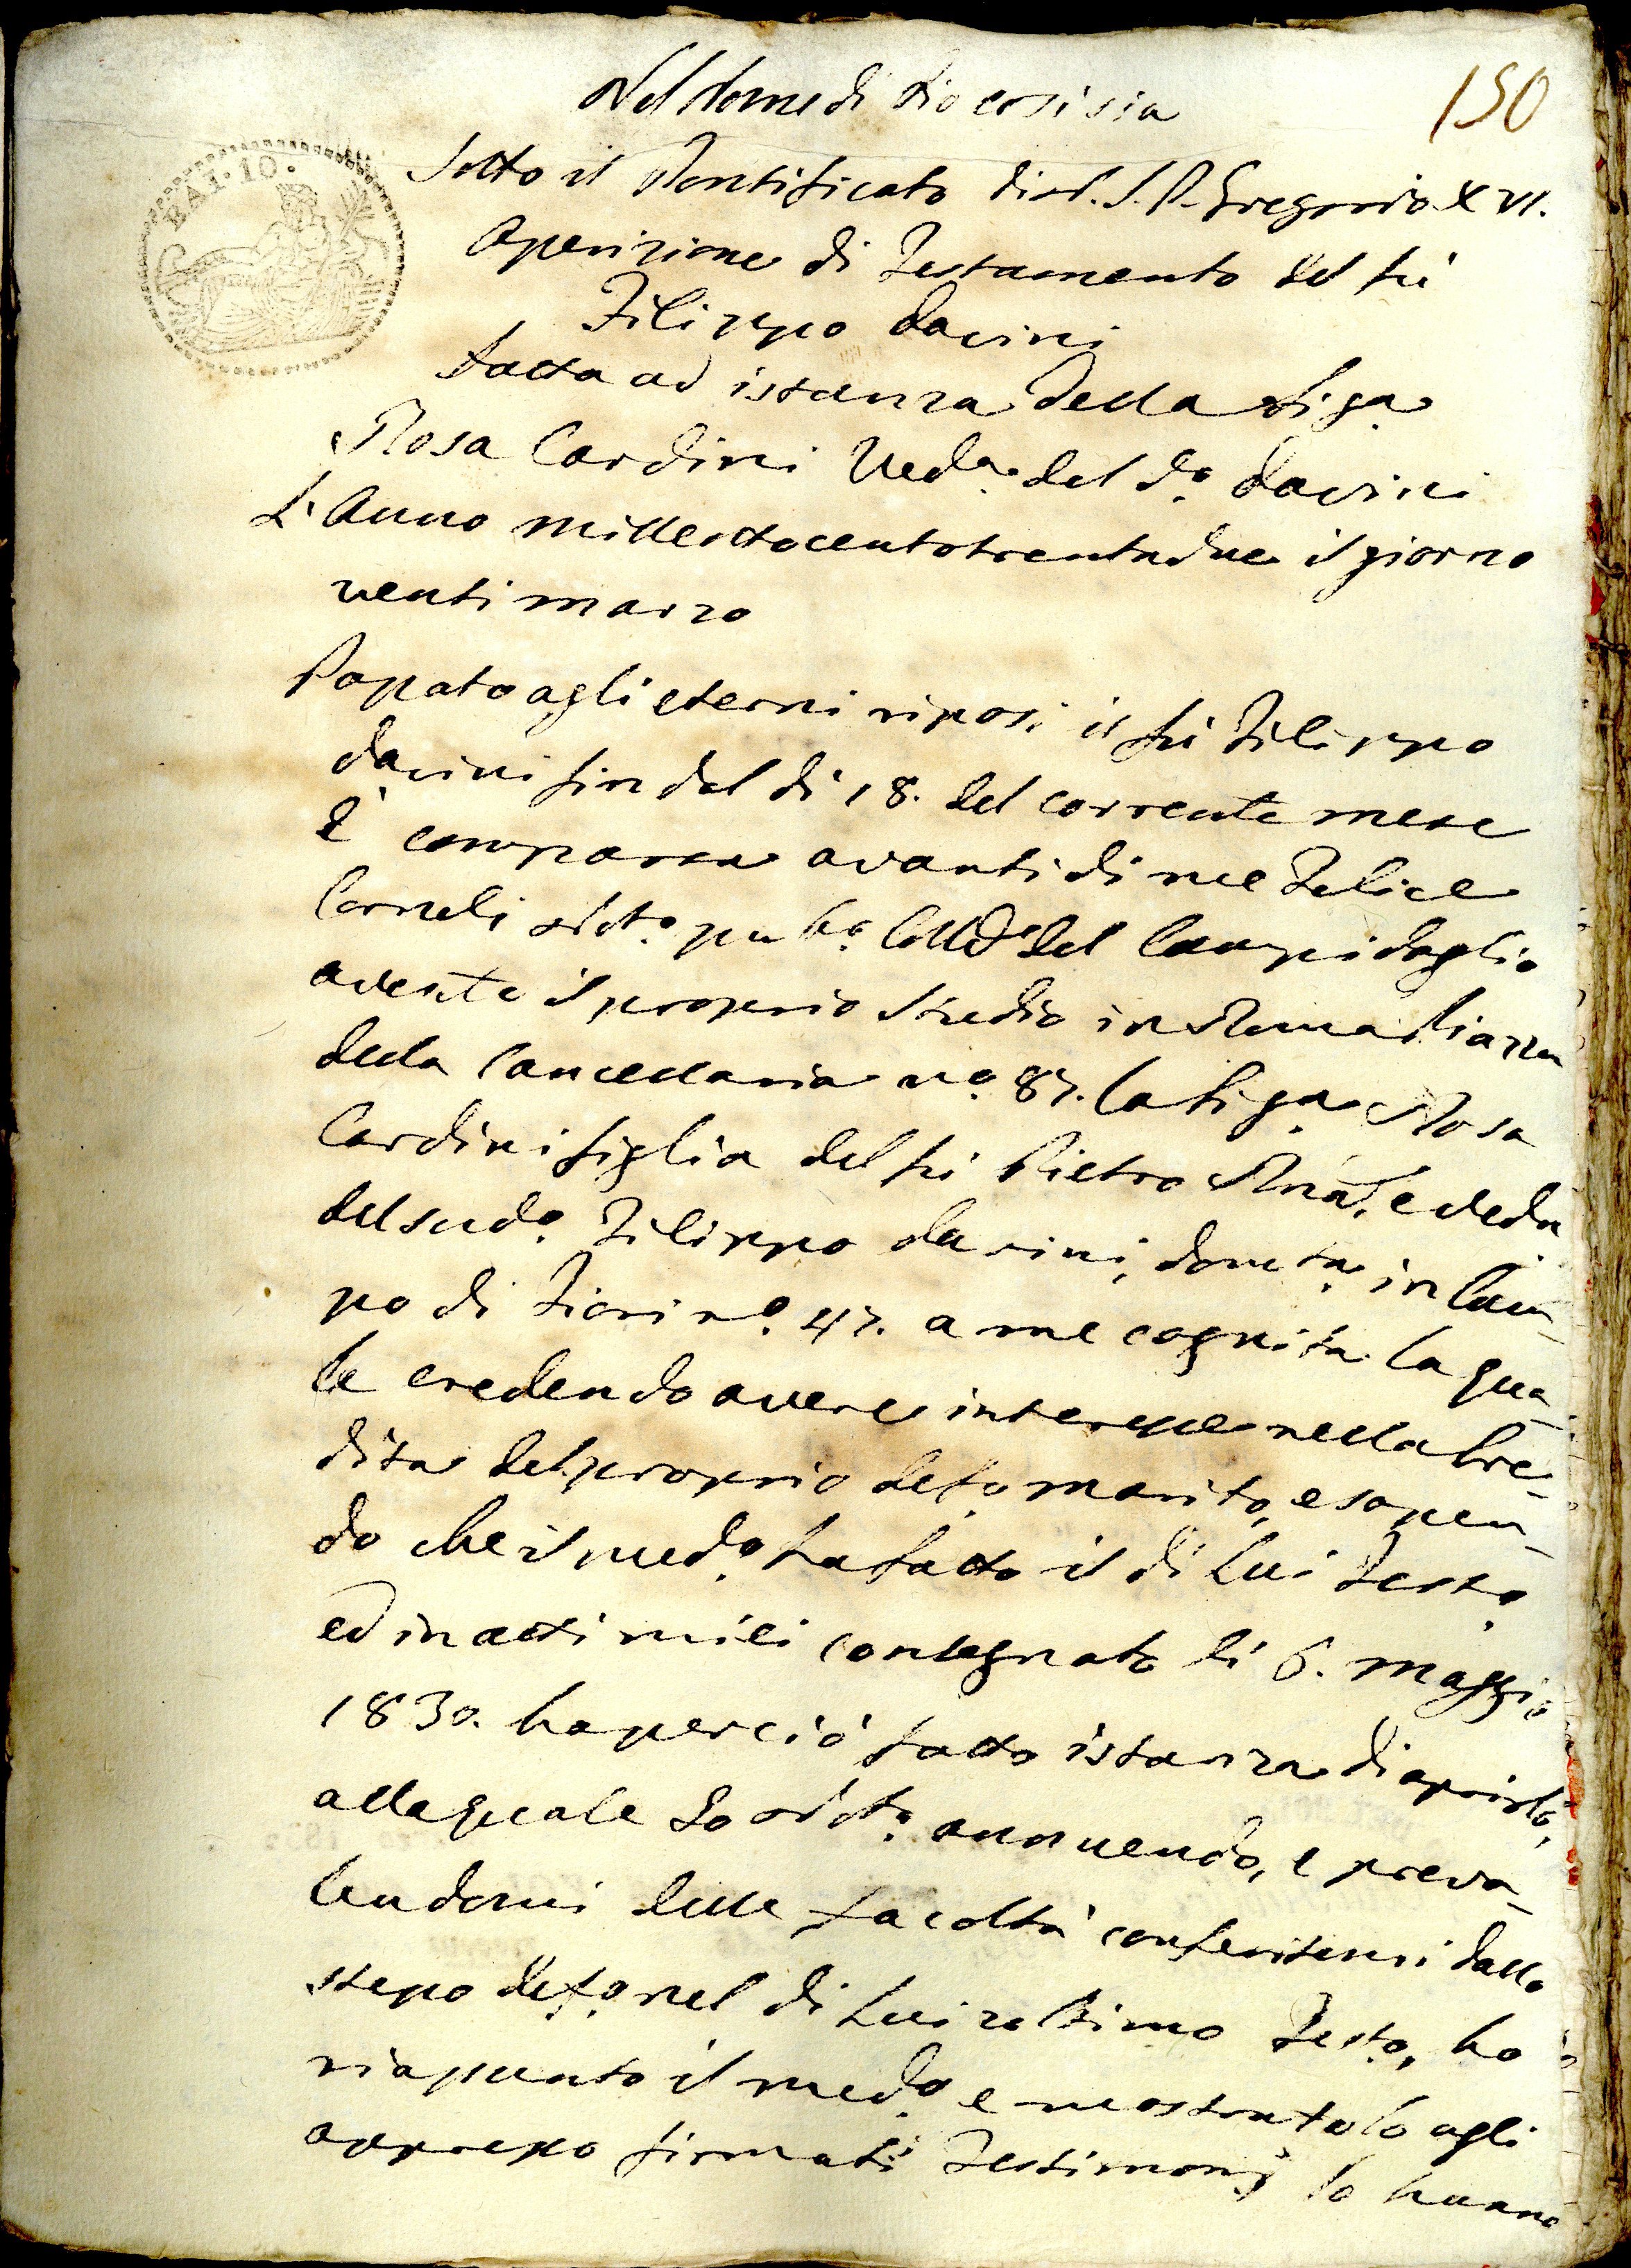 Nel Nome di Dio così sia
150
BAI. 10.
Sotto il Pontificato di N. S. P. Gregorio XVI.
Aperizione di Testamento del fù
Filippo Davini
fatta ad istanza della Sig.a
Rosa Cardini Ved.a del d.o Davini
L'Anno milleottocentotrentadue il giorno
venti marzo
Passato agli eterni riposi il fù Filippo
Davini fin dal dì 18. del corrente mese
è comparsa avanti di me Felice
Corneli Not.o pub.o Coll.e del Campidoglio
avente il proprio Studio in Roma Piazza
della Cancellaria n.o 87. la Sig.a Rosa
Cardini figlia del fù Pietro Rña, e ved.a
del sud.o Filippo Davini, domta. in Cam-
po di Fiori n.o 47. a me cognita la qua-
le credendo avere interesse nella Ere-
dità del proprio def.o marito, e sapen-
do che il med.o ha fatto il di Lui Test.o
ed in atti miei consegnato li 6. maggio
1830. ha perciò fatto istanza di aprirlo,
alla quale Io Not.o annuendo, e preva-
lendomi delle facoltà conferitemi dallo
stesso def.o nel di Lui ultimo Test.o, ho
riassunto il med.o e mostratolo agli
appresso firmati Testimonj lo hanno